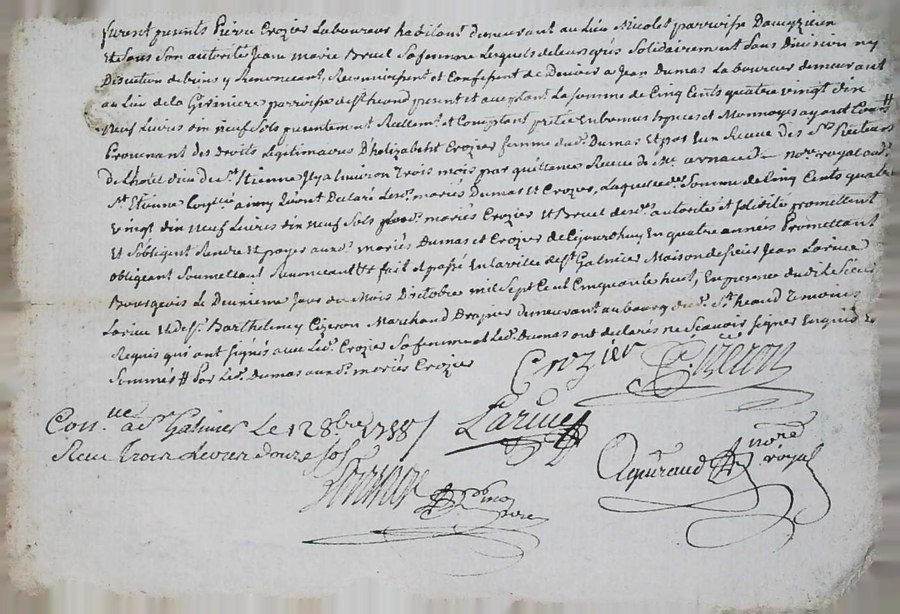 furent presents Pierre Crozier Laboureur habitant demeurant au Lieu Nicolet parroisse Daveyzieu
Et sous Son autorité Jean marie Bruel Sa femme Lesquels de leurs grés Solidairement Sans Division ny
Discution de biens y Renonceant, Reconnoissent et Confessent de Devoir a Jean Dumas Laboureur demeurant
au Lieu de la parroisse de St heand present et acceptant La Somme de Cinq Cents quatre vingt dix
Neuf Livres dix neuf Sols presentement Reellemt et Comptant pretée En bonnes Especes et Monnoyes ayant Cours #
Provenant des Droits Legitimaires D'helizabeth Crozier femme dud. Dumas Et par Eux Receue des Srs Recteurs
De Lhotel dieu de St Etienne Il y a Environ Trois mois par quittance Receue de Me arnaud nore royal aud.
St Etienne ainsy que Lont Declaré Lesd. mariés Dumas et Crozier, Laquelle de. Somme de Cinq Cents quatre
vingt dix neuf Livres dix neuf Sols Lesd. mariés Crozier et Bruel de sd. autorité et Solidité promettent
Et Sobligent Rendre et payer auxd. mariés Dumas et Crozier de Cejourdhuy En quatre années Promettant
obligeant Soumettant Renonceant &c fait et passé En la ville de St Galmier Maison de sieur Jean Larive
Bourgeois Le Deuxieme Jour du Mois Doctobre mil Sept Cent Cinquante huit, En presence dudit Sieur
Larive et de Sr Barthelemy Cizeron Marchand Drapier demeurant au bourg dud. St heand Temoins
Requis qui ont signés avec Led. Crozier Sa femme et Led. Dumas ont declarés ne Scavoir signer Enquis Et
Sommés # Par Led. Dumas auxd. mariés Crozier
Crozier Cizeron
Con.lle a St Galmier Le 12 8bre 1758 Larive
Receu Trois Livres Douze Sols
nore
royal